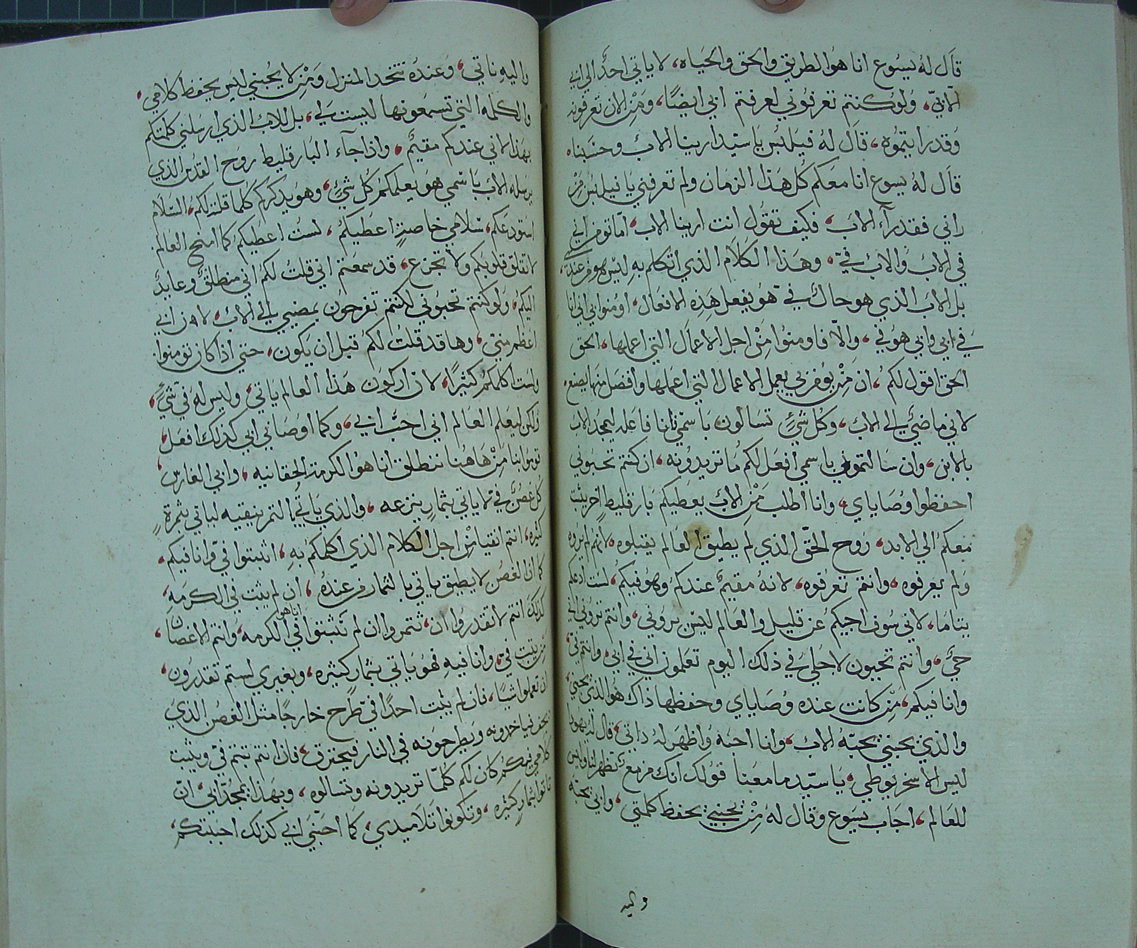 قال له يسوع انا هو الطريق والحق والحياه، لا ياتي احد الى ابي
الا بي، ولو كنتم تعرفوني لعرفتم ابي ايضا، ومن الان تعرفونه
وقد رايتموه، قال له فيلبس يا سيد ارينا الاب وحسبنا،
قال له يسوع انا معكم كل هذا الزمان ولم تعرفني يا فيلبس من
راني فقد رآ الاب، فكيف تقول انت ارينا الاب، اما تومن اني
في الاب والاب فيّ، وهذا الكلام الذي اتكلم به ليس هو من عندي
بل الاب الذي هو حال فيّ هو يفعل هذه الافعال، اومنوا بي اني انا
في ابي وابي هو فيّ، والّا فاومنوا من اجل الاعمال التي اعملها، الحق
الحق اقول لكم، ان من يومن بي يعمل الاعمال التي اعملها وافضل منها يصنع
لاني ماضي الى الاب، وكل شيءٍ تسالون باسمي فانا فاعله ليمجد الاب
بالابن، وان سالتموني باسمي افعل لكم ما تريدونه، ان كنتم تحبوني
احفظوا وصاياي، وانا اطلب من الاب يعطيكم بارقليط اخر يثبت
معكم الى الابد، روح الحق الذي لم يطيق العالم يقبلوه، لانهم لم يروه
ولم يعرفوه، وانتم تعرفوه، لانه مقيم عندكم وهو فيكم، لست ادعكم
يتاما، لاني سوف اجيكم عن قليل والعالم ليس يروني، وانتم تروني اني
حيّ، وانتم تحيون لاجلي في ذلك اليوم تعلمون اني في ابي، وانتم فيّ
وانا فيكم، من كانت عنده وصاياي وحفظها ذاك هو الذي يحبني،
والذي يحبني يحبه الاب، وانا احبه واظهر له ذاتي، قال له يهودا
ليس الاسخريوطي، يا سيد ما معنا قولك انك مزمع تظهر لنا وليس
للعالم، اجاب يسوع وقال له من يحبني يحفظ كلمتي، وابي يحبه
واليه
واليه ناتي، وعنده نتخد المنزل ومن لا يحبني ليس يحفظ كلامي،
والكلمه التي تسمعونها ليست لي، بل للاب الذي ارسلني كلمتكم
بهذا لاني عندكم مقيم، واذا جآء البارقليط روح القدس الذي
يرسله الاب باسمي هو يعلمكم كل شيٍ، وهو يدكركم كلما قلت لكم، السلام
استودعكم، سلامي خاصةٍ اعطيكم، لست اعطيكم كما يمنح العالم
لا تقلق قلوبكم ولا تجزع، قد سمعتم اني قلت لكم اني منطلق وعايد
اليكم، ولو كنتم تحبوني لكنتم تفرحون بمضيي الى الاب، لان ابي
اعظم مني، وها قد قلت لكم قبل ان يكون، حتى اذا كان تومنوا
ولست اكلمكم كثيرًا، لان اركون هذا العالم ياتي، وليس له فيّ شيٍ،
ولكن ليعلم العالم اني احب ابي، وكما اوصاني ابي كذلك افعل،
قوموا بنا من هاهنا ننطلق انا هو الكرمة الحقانيه، وابي الغارس
كل غصن فيّ لا ياتي بثمار ينزعه، والذي ياتي بالثمر ينقيه لياتي بثمرة
كثيره، انتم انقيا من اجل الكلام الذي اكلمكم به، اثبتوا فيّ وانا فيكم،
كما ان الغصن لا يطيق ياتي بالثمار من عنده، ان لم يثبت في الكرمه،
كذلك انتم لا تقدروا ان، تثمروا ان لم تثبتوا فيّ انا هو الكرمه، وانتم الاغصان،
من يثبت فيّ، وانا فيه فهو ياتي بثمار كثيره، وبغيري لستم تقدرون،
ان تعملوا شيا، فان لم يثبت احدًا فيّ طرح خارجًا مثل الغصن الذي
يجف فياخدونه ويطرحونه في النار فيحترق، فان انتم ثبتم فيّ ويثبت
كلامي فيكم كان لكم كلما تريدونه وتسالوه، وبهذا يمجد ابي، ان
تاتوا بثمار كثيره، وتكونوا تلاميدي، كما احبني ابي كذلك احببتكم،